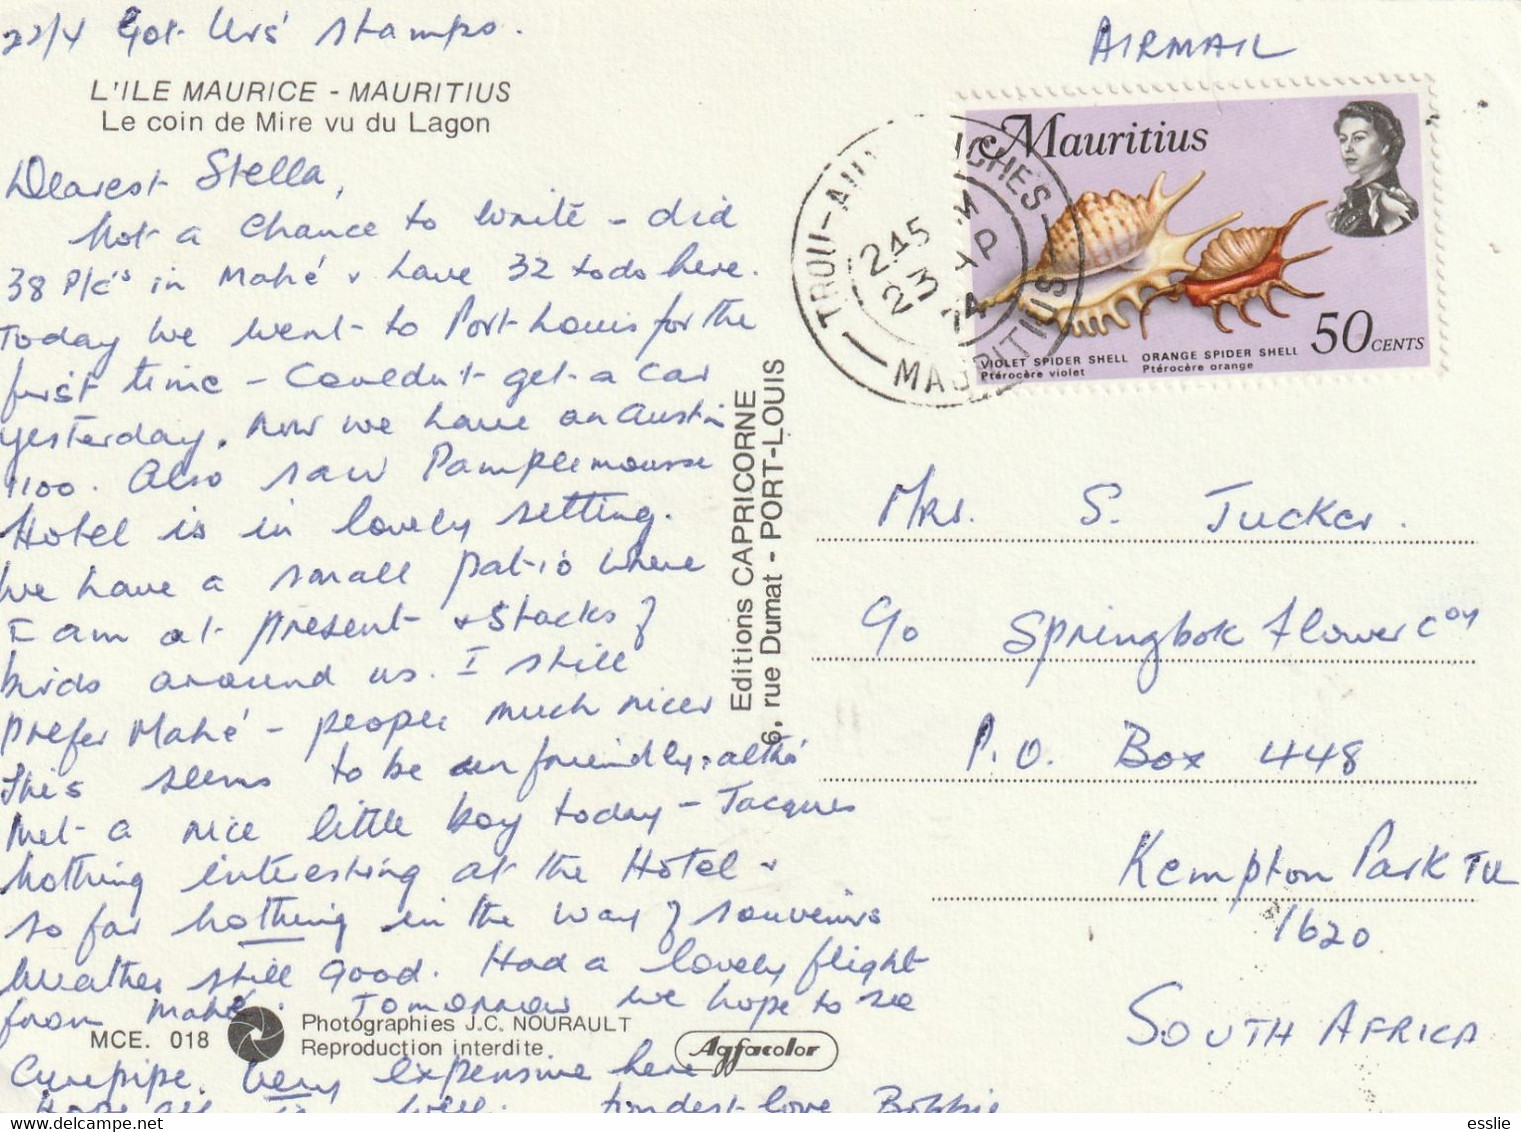 22/4 Got Urs' stamps.
AIRMAIL
L'ILE MAURICE - MAURITIUS
Le coin de Mire vu du Lagon
Dearest Stella,
Not a chance to write - did
38 P/c's in Mahé & have 32 to do here.
Today we went to Port Louis for the
first time - Couldn't get a car
yesterday. Now we have an Austin
1100. Also saw Pamplemousse
Hotel is in lovely setting.
We have a small patio where
I am at present & stacks of
birds around us. I still
prefer Mahé - people much nicer
This seems to be unfriendly, altho'
met a nice little boy today - Jacques
Nothing interesting at the Hotel &
so far nothing in the way of souvenirs
Weather still good. Had a lovely flight
from Mahé. Tomorrow we hope to see
Curepipe. Very expensive here
Hope all is well. Fondest love Bobbie
MCE. 018
Photographies J.C. NOURAULT
Reproduction interdite
Agfacolor
Editions CAPRICORNE
6, rue Dumat - PORT-LOUIS
Mauritius
VIOLET SPIDER SHELL ORANGE SPIDER SHELL
Ptérocère violet Ptérocère orange
50 CENTS
TROU-AU ICHES
245
23 AP
74
MAURITIUS
Mrs. S. Tucker.
c/o Springbok Flower Coy
P.O. Box 448
Kempton Park TVL
1620
SOUTH AFRICA
esslie